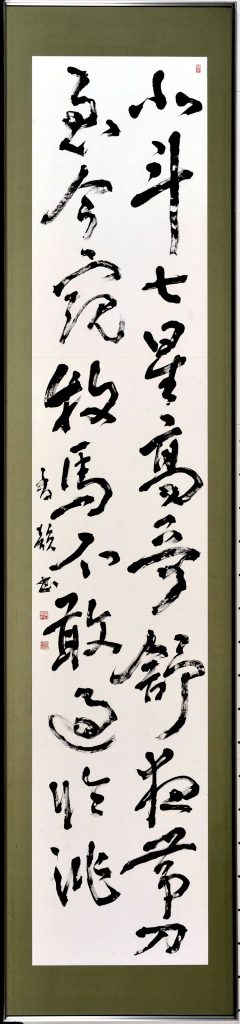 北斗七星高哥舒夜帶刀
至今窺牧馬不敢過臨洮
香韻書